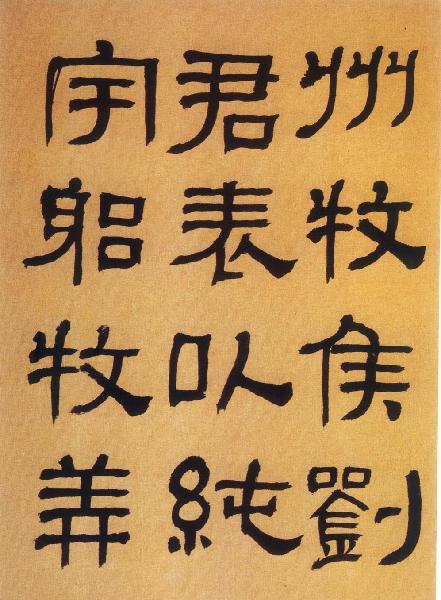 州牧侯劉
君表以純
宇躳牧